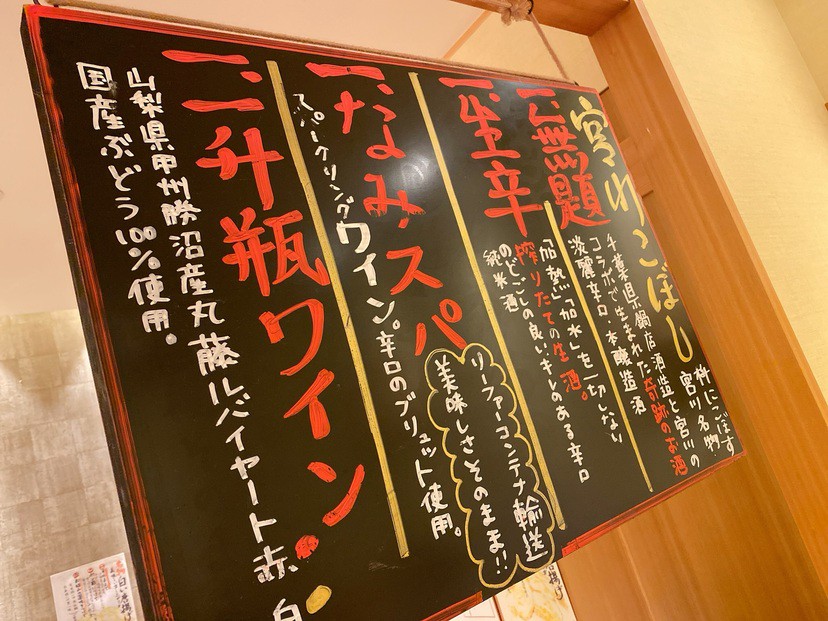 宮川こぼし
枡にこぼす
宮川名物
一、無題
千葉県鍋店酒造と宮川の
コラボで生まれた奇跡のお酒
淡麗辛口・本醸造酒
一、生辛
「加熱」「加水」を一切しない
搾りたての生酒。
のどごしの良いキレのある辛口
純米酒
一、なみ、スパ
スパークリングワイン。辛口のブリュット使用。
リーファーコンテナ輸送
美味しさそのまま!!
一、一升瓶ワイン
山梨県甲州勝沼産丸藤ルバイヤート赤、白
国産ぶどう100%使用。